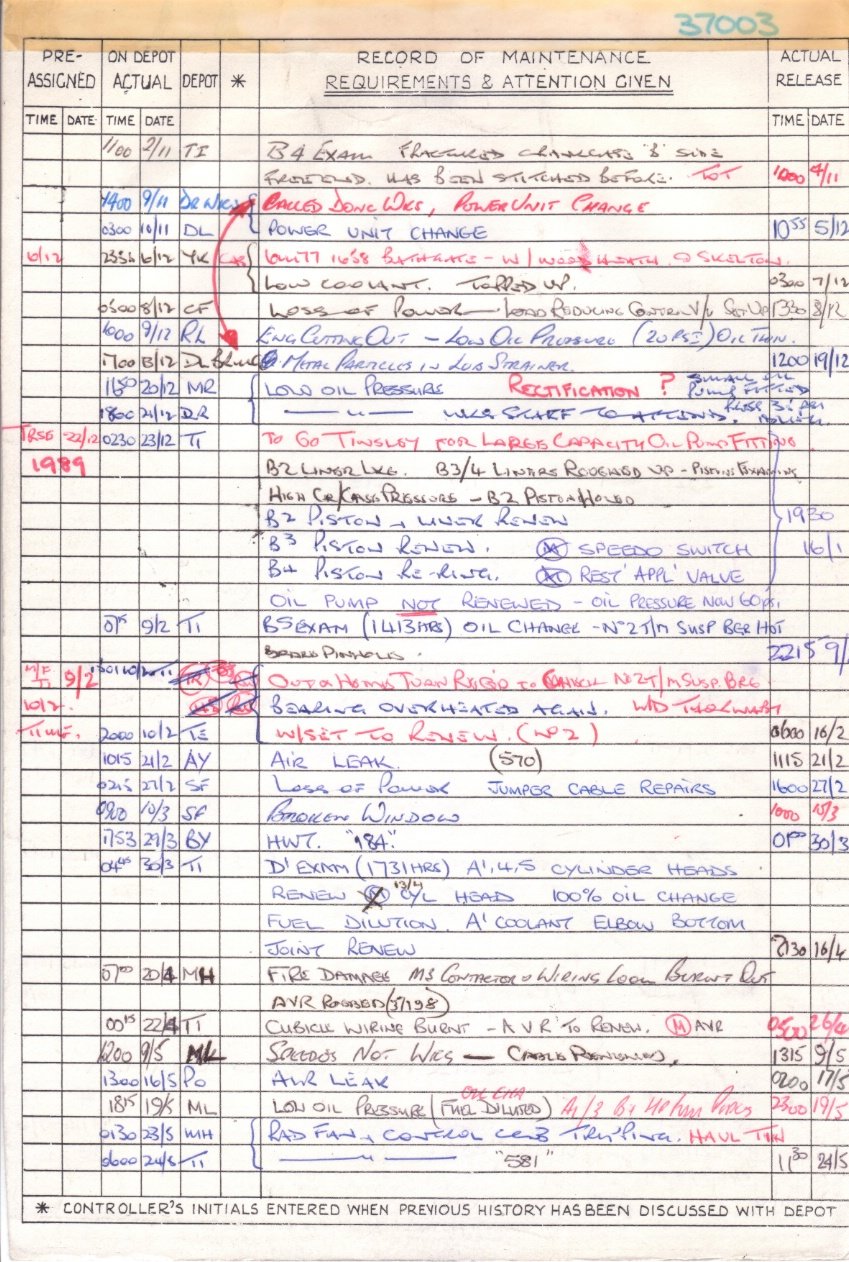 37003
PRE- ON DEPOT RECORD OF MAINTENANCE ACTUAL
ASSIGNED ACTUAL DEPOT * REQUIREMENTS & ATTENTION GIVEN RELEASE
TIME DATE TIME DATE TIME DATE
1100 2/11 TI B4 EXAM FRACTURED CRANKCASE 'B' SIDE
HAS BEEN STITCHED BEFORE. TOT 1000 4/11
1400 9/11 DR WKS CALLED DONC WKS, POWER UNIT CHANGE
0300 10/11 DL POWER UNIT CHANGE 1055 5/12
6/12 2334 6/12 YK BATHGATE - W/ HEATH @ SKELTON.
LOW COOLANT. TOPPED UP. 0300 7/12
0300 8/12 CF LOSS OF POWER - LOAD REDUCING CONTROL V/V SET UP 1330 8/12
1000 9/12 RL ENG CUTTING OUT - LOW OIL PRESSURE (20 PSI) OIL THIN.
1700 13/12 DL METAL PARTICLES IN LUB STRAINER. 1200 19/12
1150 20/12 MR LOW OIL PRESSURE RECTIFICATION ? SMALL OIL PUMP FITTED
1800 21/12 DR — " — WKS STAFF TO ATTEND.
22/12 0230 23/12 TI TO GO TINSLEY FOR LARGE CAPACITY OIL PUMP FITTING
1989 B2 LINER LKG. B3/4 LINERS ROUGHED UP - PISTONS
HIGH CR/CASE PRESSURE - B2 PISTON HOLED
B2 PISTON + LINER RENEW 1930
B3 PISTON RENEW. (M) SPEEDO SWITCH 16/1
B4 PISTON RE-RING. REST' APPL' VALVE
OIL PUMP NOT RENEWED - OIL PRESSURE NOW 60 psi.
07 9/2 TI B5 EXAM (1413 HRS) OIL CHANGE - No 2 T/M SUSP BRG HOT
2215 9/
M/F TI 9/2 TO No 2 T/M SUSP. BRG
10/2. BEARING OVERHEATED AGAIN. W/D THORNABY
TIME. 2000 10/2 TE W/SET TO RENEW. (No 2) 0600 16/2
1015 21/2 AY AIR LEAK. (570) 1115 21/2
0215 27/2 SF LOSS OF POWER JUMPER CABLE REPAIRS 1600 27/2
0900 10/3 SF BROKEN WINDOW 1000 15/3
1753 29/3 BY HWT. "984". 0100 30/3
0445 30/3 TI D' EXAM (1731 HRS) A'1,4,5 CYLINDER HEADS
RENEW (M) 13/4 CYL HEAD 100% OIL CHANGE
FUEL DILUTION. A' COOLANT ELBOW BOTTOM
JOINT RENEW 2130 16/4
0700 20/4 MH FIRE DAMAGE MS CONTACTOR & WIRING LOOM BURNT OUT
AVR ROBBED (5/198)
0015 22/4 TI CUBICLE WIRING BURNT - AVR TO RENEW. (M) AVR 0500 26/4
1200 9/5 ML SPEEDOS NOT WKG - CABLE RENEWED. 1315 9/5
1300 16/5 PO AIR LEAK 0200 17/5
1815 19/5 ML LOW OIL PRESSURE (FUEL DILUTED) OIL CHA 2300 19/5
0130 23/5 WH RAD FAN + CONTROL CCB TRIPPING. HAUL TIN
0600 24/5 TI — " — "581" 1130 24/5
* CONTROLLER'S INITIALS ENTERED WHEN PREVIOUS HISTORY HAS BEEN DISCUSSED WITH DEPOT